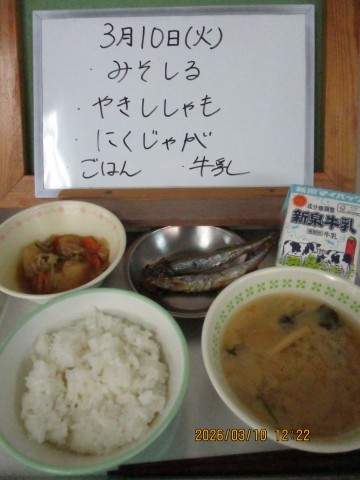 3月10日(火)
・みそしる
・やきししゃも
・にくじゃが
ごはん ・牛乳
成分無調整
新泉牛乳
2026/03/10 12:22